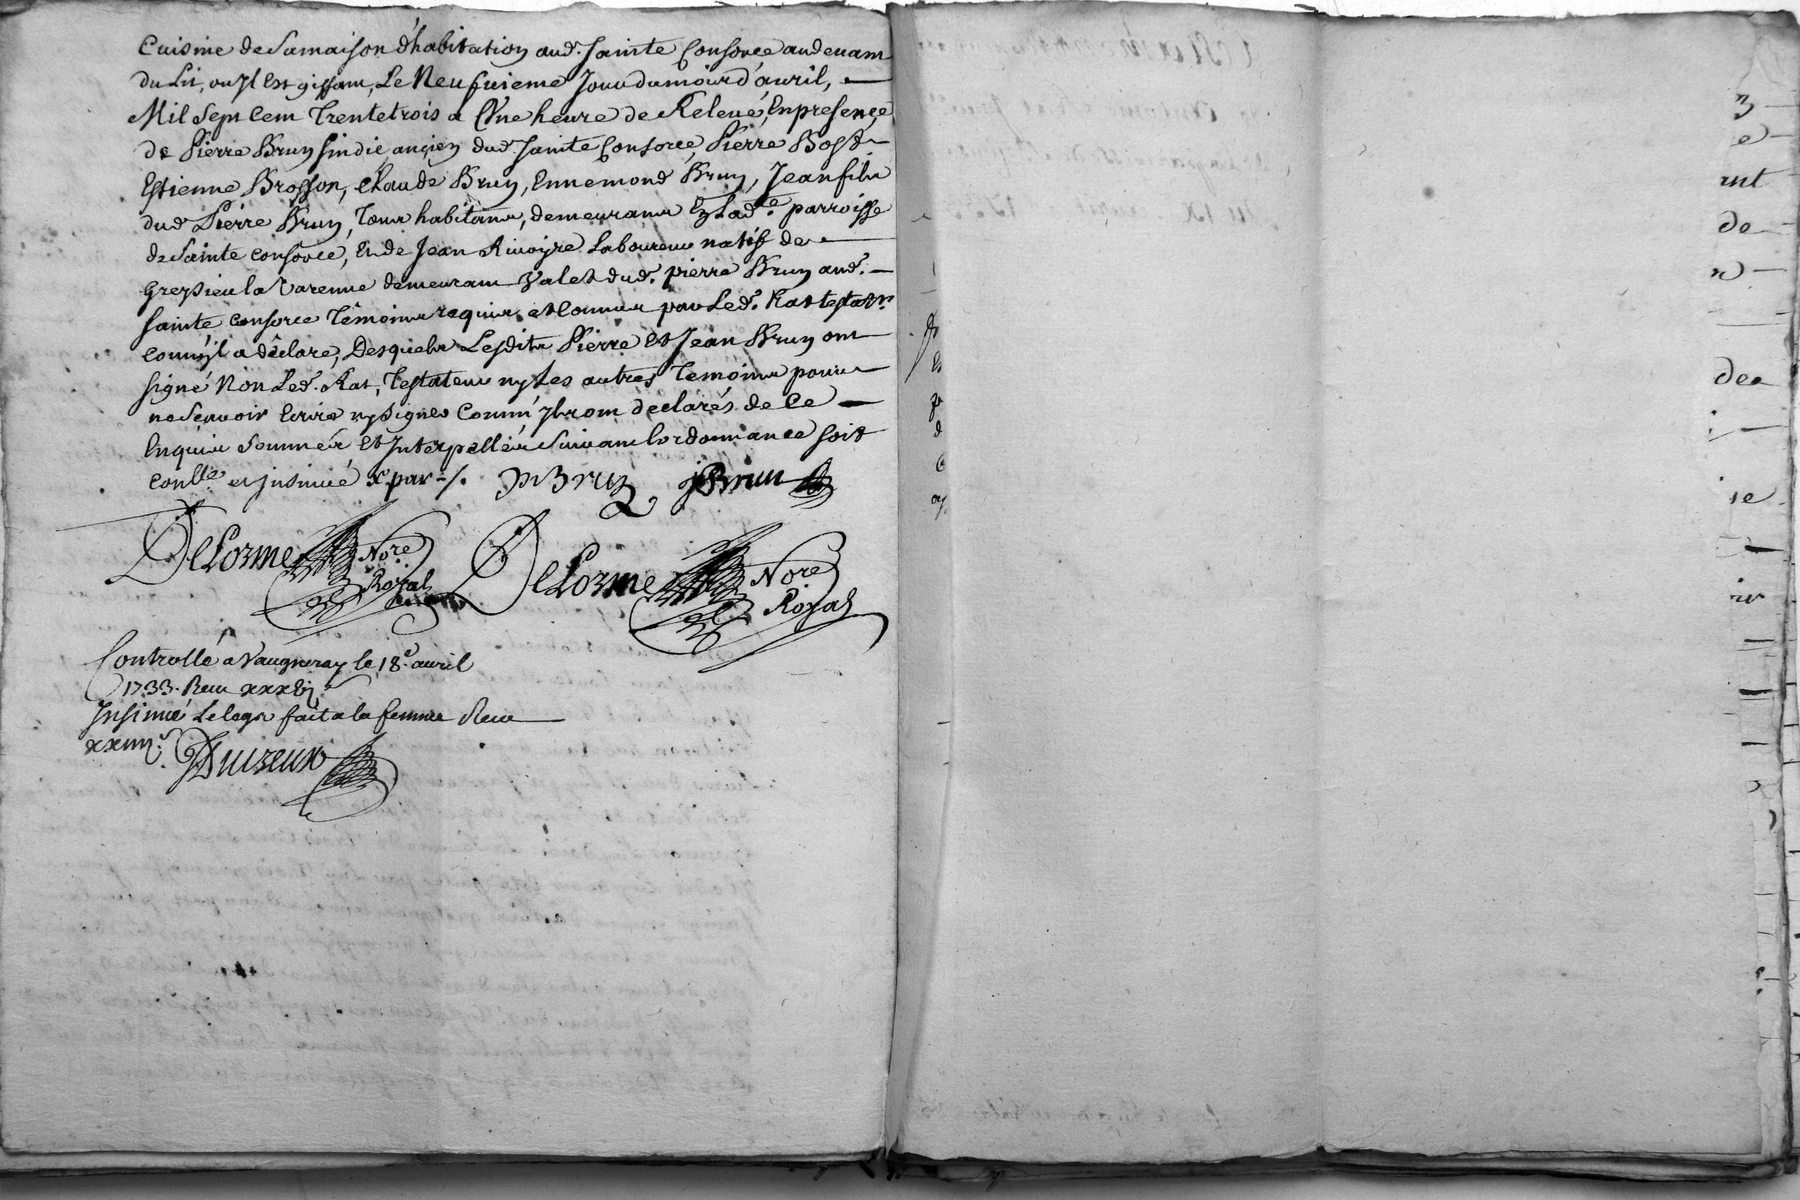 Cuisine de Samaison d'habitation aud. Sainte Consorce audevant
du Lit, ou Jl Est gissant, Le Neufvieme Jour du mois d'avril, —
Mil Sept Cent Trentetrois a Une heure de Relevé, En presence
de Pierre Brun sindic ancien dud. Sainte Consorce, Pierre Bost —
Estienne Brosson, Claude Brun, Ennemond Brun, Jean fils
dud. Pierre Brun, Tous habitans, demeurans En Lad.e parroisse
de Sainte Consorce, Et de Jean Rivoyre Laboureur natif de —
Greysieu la Varenne demeurant Valet dud. pierre Brun aud. —
Sainte Consorce Témoins requis et Connus par Led. Rat testatr.
comm'jl a déclaré, Desquels Lesdits Pierre et Jean Brun ont
signé Non Led. Rat, Testateur ny Les autres Temoins pour
ne Scavoir Ecrire ny Signer Comm'Jls ont declarés de Ce —
Enquis Sommés Et Interpellés Suivant Lordonnance soit
conllé et jnsinué
P Brun J Brun
DeLorme Nore Royal DeLorme Nore Royal
Controllé a Vaugneray le 18.e avril
1733. Receu
Jnsinué Le legs fait a la femme Receu —